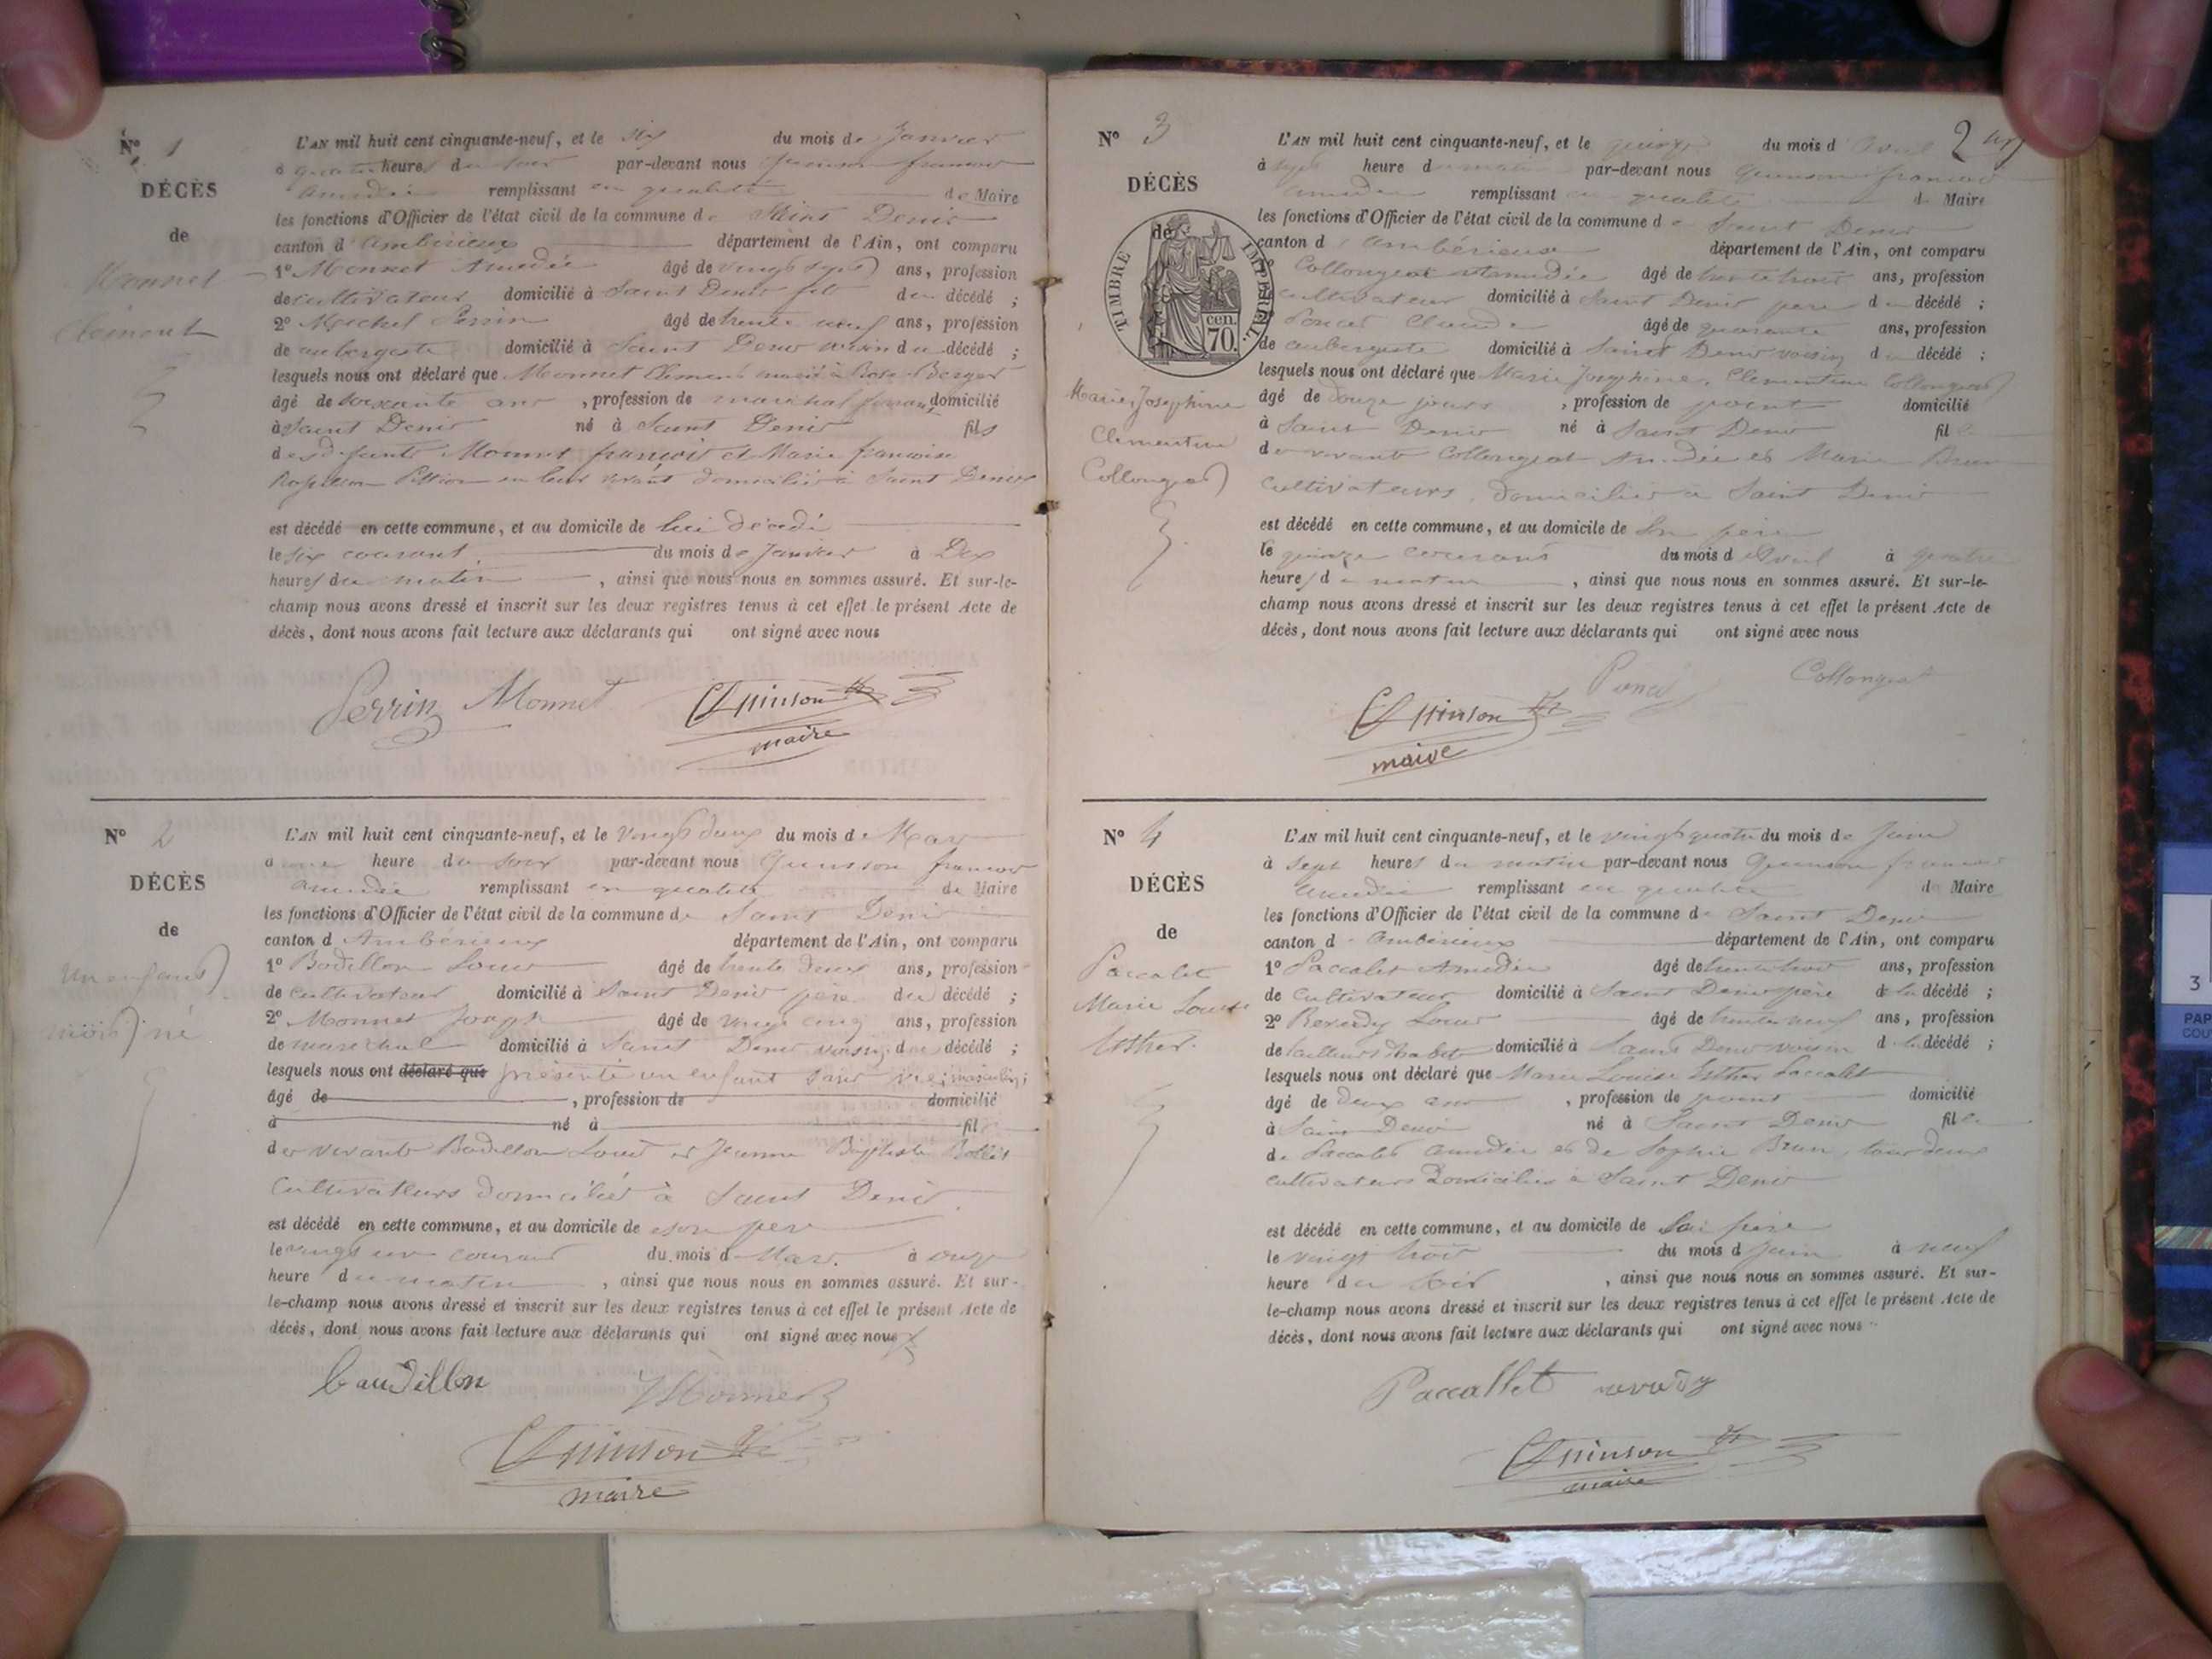 N° 1
DÉCÈS
de
Monnet
Clément
L'AN mil huit cent cinquante-neuf, et le six du mois de Janvier
à quatre heures du soir par-devant nous Quinson françois
Amédée remplissant en qualité de Maire
les fonctions d'Officier de l'état civil de la commune de Saint Denis
canton d'Ambérieux département de l'Ain, ont comparu
1° Monnet Amédée âgé de vingt sept ans, profession
de cultivateur domicilié à Saint Denis fils du décédé ;
2° Michel Perrin âgé de trente neuf ans, profession
de aubergiste domicilié à Saint Denis voisin du décédé ;
lesquels nous ont déclaré que Monnet Clément marié à Rose Berger
âgé de soixante ans , profession de maréchal ferrant domicilié
à Saint Denis né à Saint Denis fils
des défunts Monnet françois et Marie françoise
en leur vivant domiciliés à Saint Denis
est décédé en cette commune, et au domicile de lui décédé
le six courant du mois de Janvier à Dix
heures du matin , ainsi que nous nous en sommes assuré. Et sur-le-
champ nous avons dressé et inscrit sur les deux registres tenus à cet effet le présent Acte de
décès, dont nous avons fait lecture aux déclarants qui ont signé avec nous
Perrin Monnet Quinson
maire
N° 2
DÉCÈS
de
un enfant
mort né
L'AN mil huit cent cinquante-neuf, et le vingt deux du mois de Mars
à une heure du soir par-devant nous Quinson françois
Amédée remplissant en qualité de Maire
les fonctions d'Officier de l'état civil de la commune de Saint Denis
canton d'Ambérieux département de l'Ain, ont comparu
1° Bodillon Louis âgé de trente deux ans, profession
de cultivateur domicilié à Saint Denis père du décédé ;
2° Monnet Joseph âgé de vingt cinq ans, profession
de maréchal domicilié à Saint Denis voisin du décédé ;
lesquels nous ont déclaré que présenté un enfant sans vie, masculin ;
âgé de , profession de domicilié
à né à fil
des vivants Bodillon Louis et Jeanne Baptiste Bollet
Cultivateurs domiciliés à Saint Denis
est décédé en cette commune, et au domicile de son père
le vingt un courant du mois de Mars à onze
heure du matin , ainsi que nous nous en sommes assuré. Et sur-
le-champ nous avons dressé et inscrit sur les deux registres tenus à cet effet le présent Acte de
décès, dont nous avons fait lecture aux déclarants qui ont signé avec nous
baudillon JMonnet
Quinson
maire
N° 3
2
DÉCÈS
de
TIMBRE IMPÉRIAL
70 cen.
Marie Josephine
Clementine
Collongeat
L'AN mil huit cent cinquante-neuf, et le quinze du mois d'Avril
à sept heure du matin par-devant nous Quinson françois
Amédée remplissant en qualité de Maire
les fonctions d'Officier de l'état civil de la commune de Saint Denis
canton d'Ambérieux département de l'Ain, ont comparu
1° Collongeat Amédée âgé de trente trois ans, profession
cultivateur domicilié à Saint Denis père du décédé ;
Poncet Claude âgé de quarante ans, profession
de aubergiste domicilié à Saint Denis voisin du décédé ;
lesquels nous ont déclaré que Marie Josephine Clementine Collongeat
âgé de douze jours , profession de point domicilié
à Saint Denis né à Saint Denis fille
des vivants Collongeat Amédée et Marie Brun
cultivateurs domiciliés à Saint Denis
est décédé en cette commune, et au domicile de son père
le quinze courant du mois d'Avril à quatre
heures du matin , ainsi que nous nous en sommes assuré. Et sur-le-
champ nous avons dressé et inscrit sur les deux registres tenus à cet effet le présent Acte de
décès, dont nous avons fait lecture aux déclarants qui ont signé avec nous
Poncet Collongeat
Quinson
maire
N° 4
DÉCÈS
de
Paccalet
Marie Louise
Esther
L'AN mil huit cent cinquante-neuf, et le vingt quatre du mois de Juin
à sept heures du matin par-devant nous Quinson françois
Amédée remplissant en qualité de Maire
les fonctions d'Officier de l'état civil de la commune de Saint Denis
canton d'Ambérieux département de l'Ain, ont comparu
1° Paccalet Amédée âgé de trente trois ans, profession
de cultivateur domicilié à Saint Denis père de la décédé ;
2° Reverdy Louis âgé de trente neuf ans, profession
de tailleur d'habits domicilié à Saint Denis voisin de la décédé ;
lesquels nous ont déclaré que Marie Louise Esther Paccalet
âgé de deux ans , profession de point domicilié
à Saint Denis né à Saint Denis fille
de Paccalet Amédée et de Sophie Brun, tous deux
cultivateurs domiciliés à Saint Denis
est décédé en cette commune, et au domicile de son père
le vingt trois du mois de Juin à neuf
heure du soir , ainsi que nous nous en sommes assuré. Et sur-
le-champ nous avons dressé et inscrit sur les deux registres tenus à cet effet le présent Acte de
décès, dont nous avons fait lecture aux déclarants qui ont signé avec nous
Paccallet reverdy
Quinson
maire
3
PAP